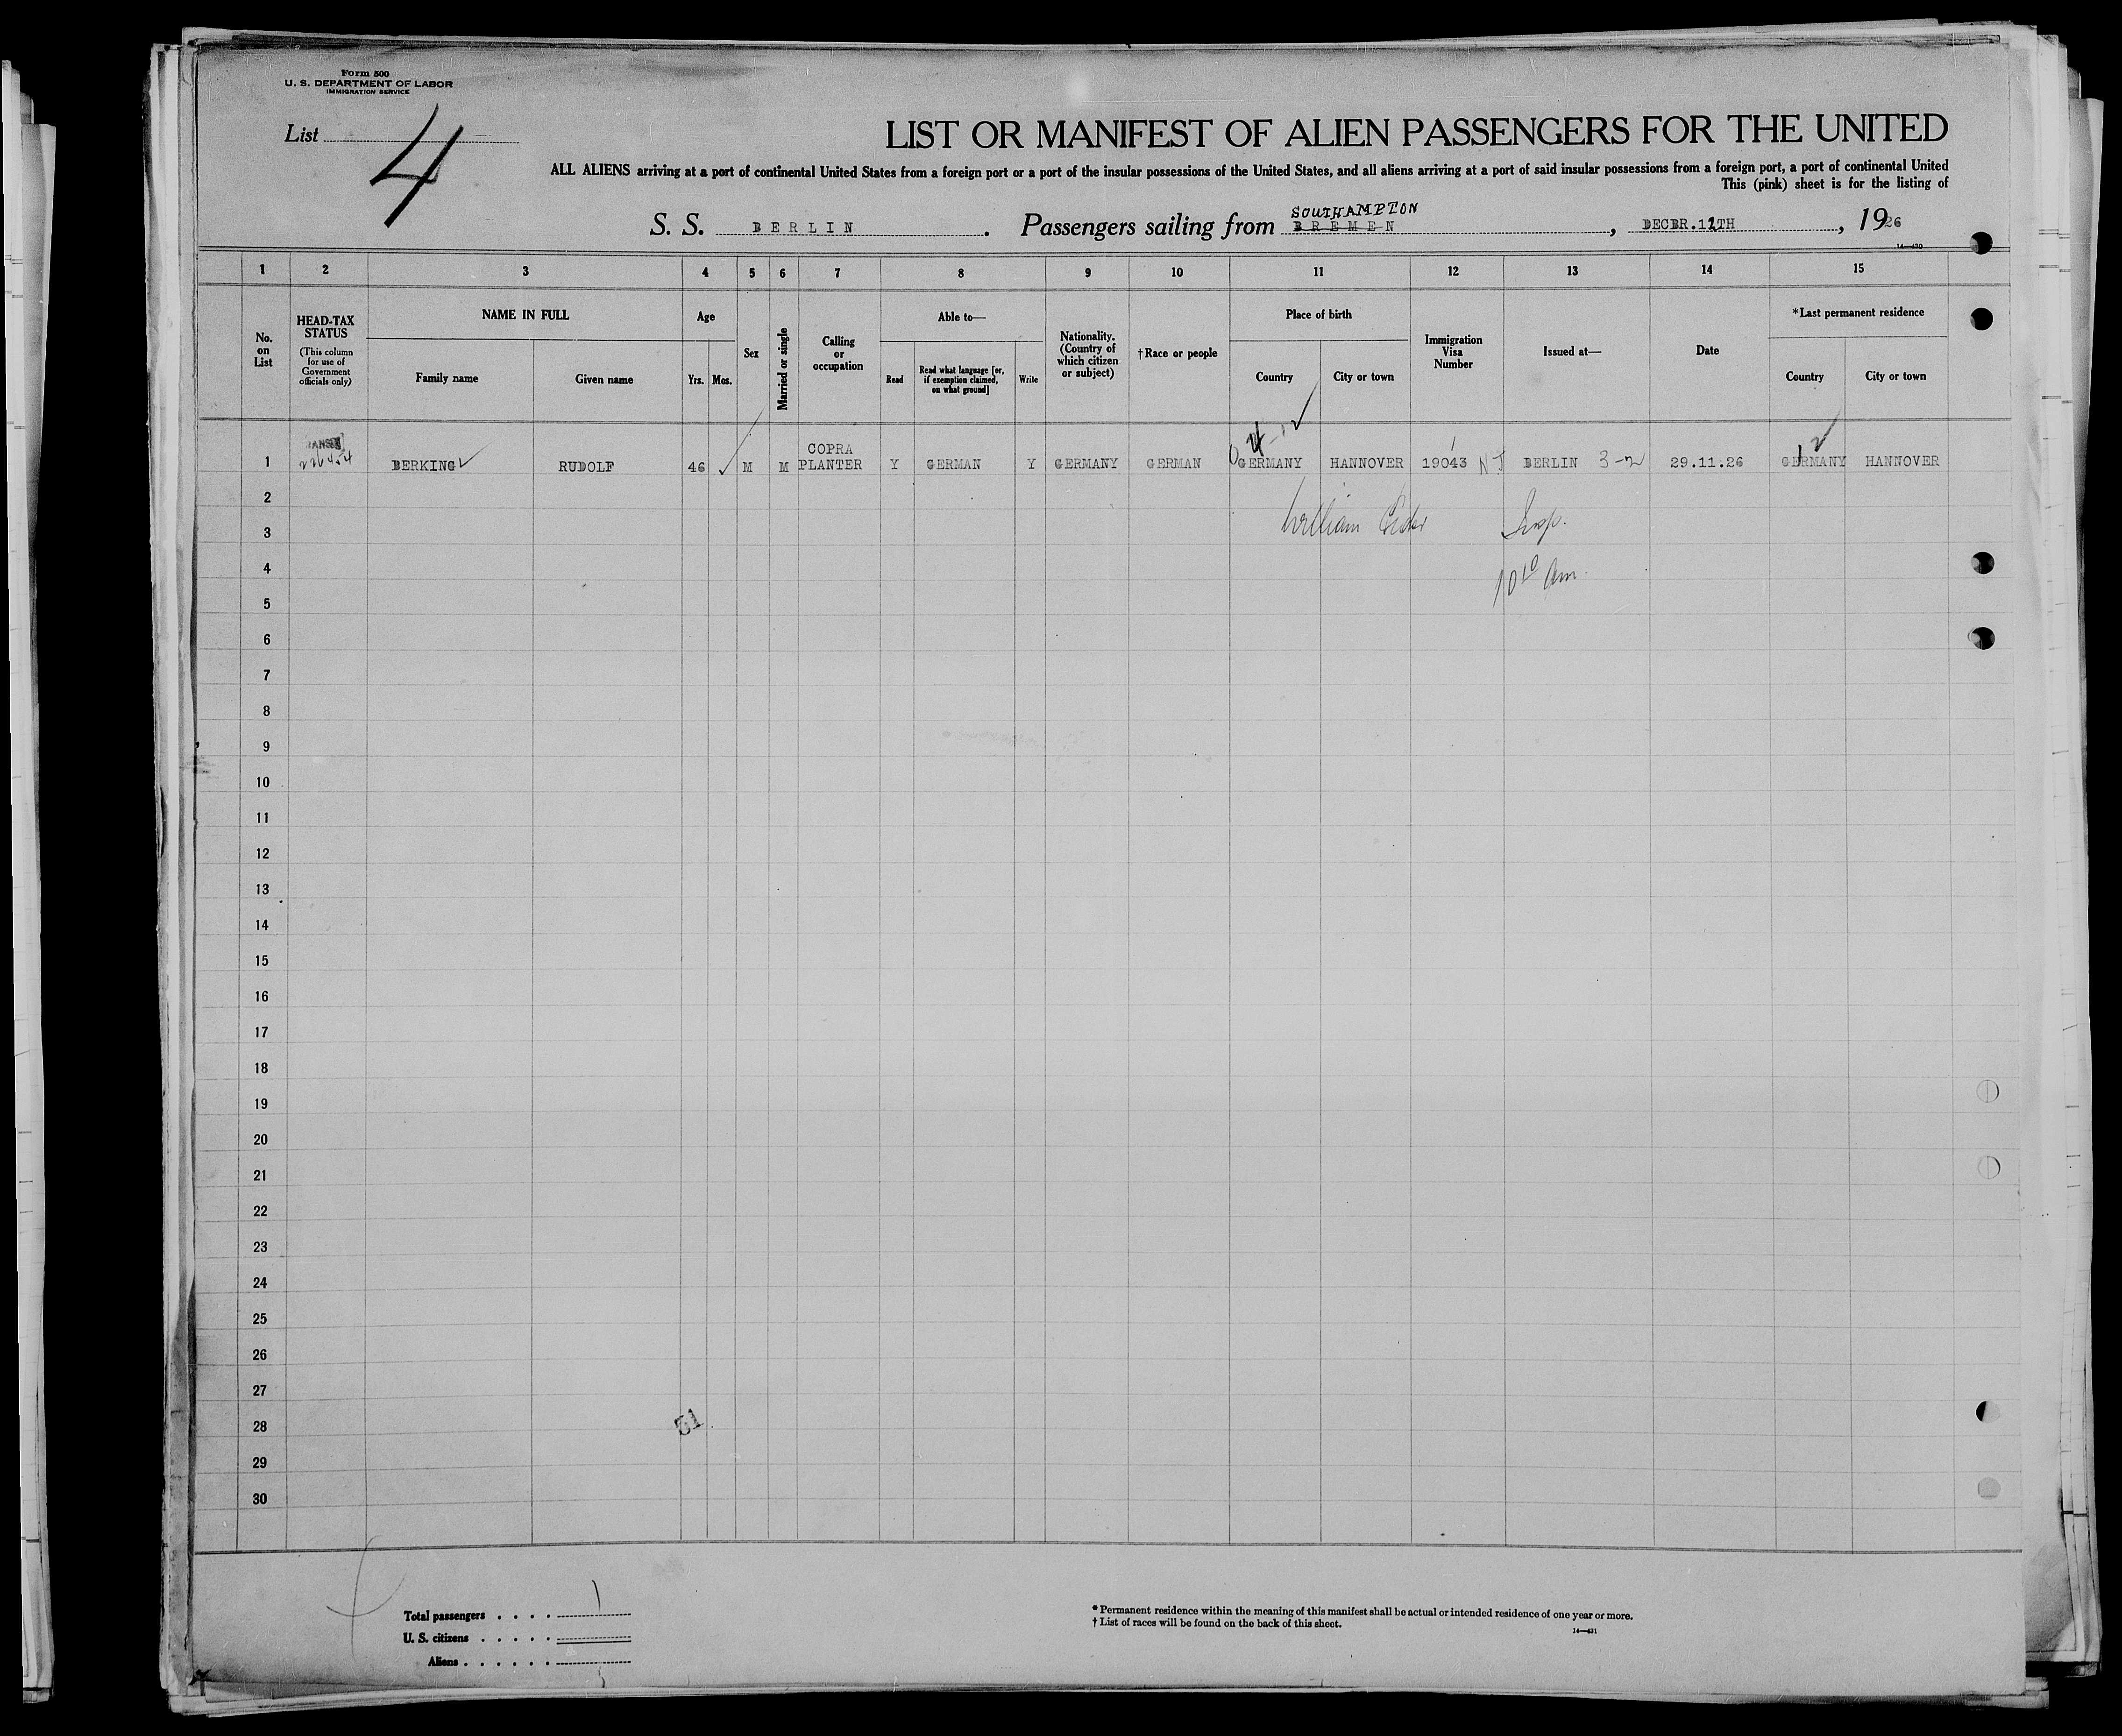 Form 500
U. S. DEPARTMENT OF LABOR
IMMIGRATION SERVICE
List 4
LIST OR MANIFEST OF ALIEN PASSENGERS FOR THE UNITED
ALL ALIENS arriving at a port of continental United States from a foreign port or a port of the insular possessions of the United States, and all aliens arriving at a port of said insular possessions from a foreign port, a port of continental United
This (pink) sheet is for the listing of
SOUTHAMPTON
S. S. BERLIN . Passengers sailing from BREMEN , DECBR.12TH , 1926
14—430
1 2 3 4 5 6 7 8 9 10 11 12 13 14 15
No. on List
HEAD-TAX STATUS
(This column for use of Government officials only)
NAME IN FULL
Family name
Given name
Age
Yrs. Mos.
Sex
Married or single
Calling or occupation
Able to—
Read
Read what language [or, if exemption claimed, on what ground]
Write
Nationality. (Country of which citizen or subject)
†Race or people
Place of birth
Country
City or town
Immigration Visa Number
Issued at—
Date
*Last permanent residence
Country
City or town
1 BERKING ✓ RUDOLF 46 ✓ M M COPRA PLANTER Y GERMAN Y GERMANY GERMAN GERMANY HANNOVER 19043 BERLIN 3-2 29.11.26 GERMANY HANNOVER
2
William Insp.
3
10 10 am.
4
5
6
7
8
9
10
11
12
13
14
15
16
17
18
19
20
21
22
23
24
25
26
27
28
51
29
30
Total passengers . . . . 1
U. S. citizens . . . . .
Aliens . . . . . .
* Permanent residence within the meaning of this manifest shall be actual or intended residence of one year or more.
† List of races will be found on the back of this sheet.
14—431